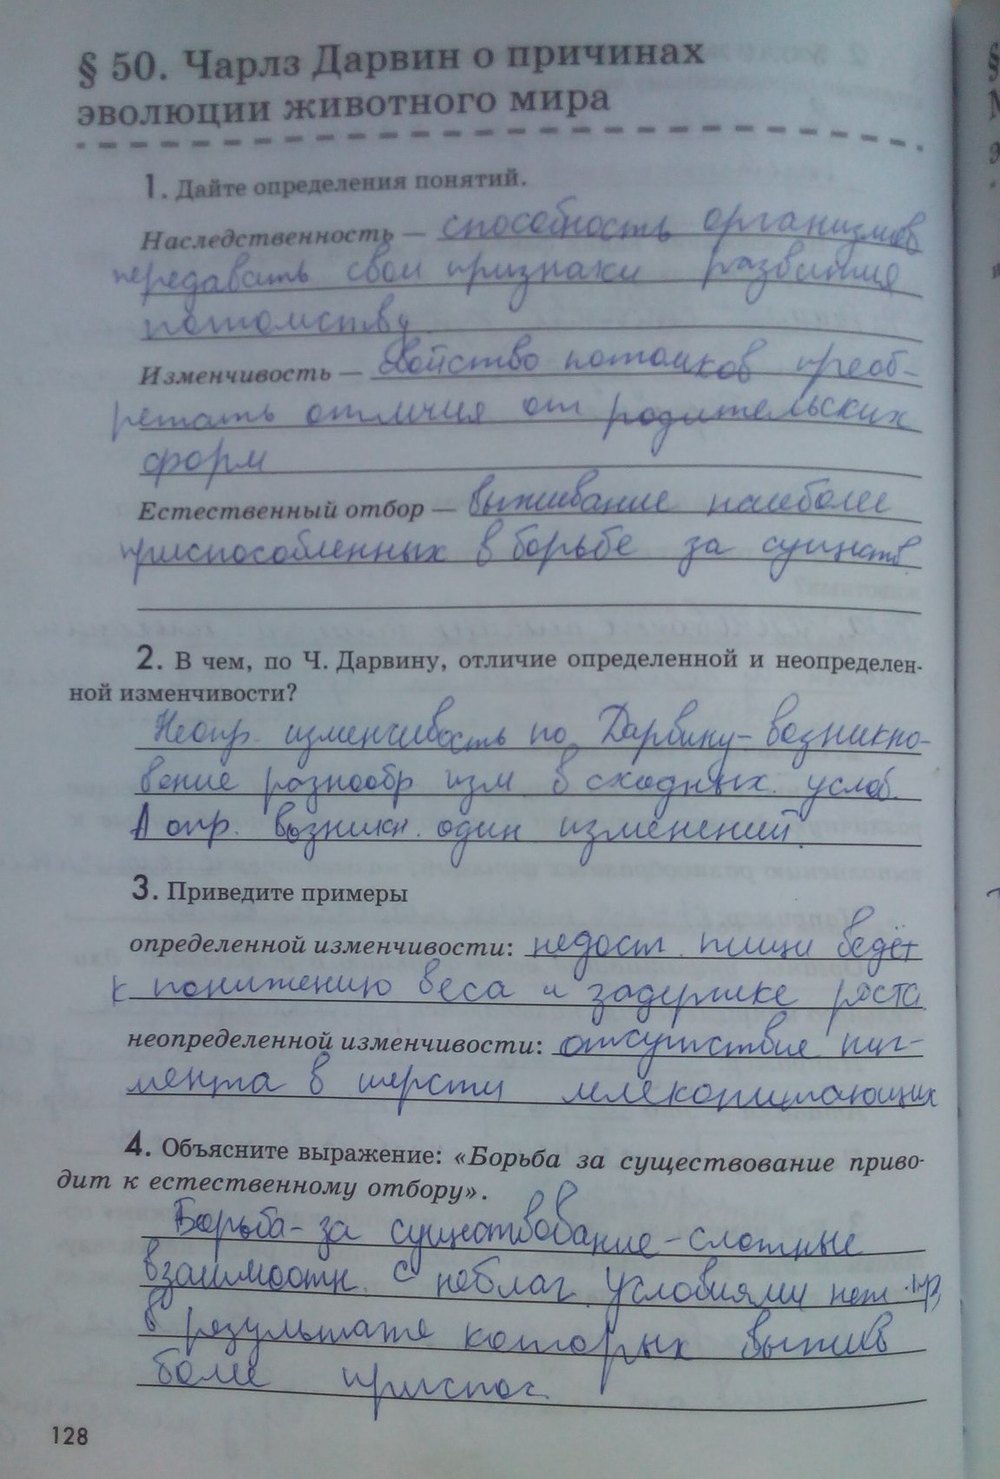 § 50. Чарлз Дарвин о причинах
эволюции животного мира
1. Дайте определения понятий.
Наследственность — способность организмов
передавать свои признаки развития
потомству
Изменчивость — свойство потомков преоб-
ретать отличия от родительских
форм
Естественный отбор — выживание наиболее
приспособленных в борьбе за существ
2. В чем, по Ч. Дарвину, отличие определенной и неопределен-
ной изменчивости?
Неопр. изменчивость по Дарвину - возникно-
вение разнообр изм в сходных. услов.
А опр. возникн. один изменений.
3. Приведите примеры
определенной изменчивости: недост. пищи ведёт
к понижению веса и задержке роста
неопределенной изменчивости: отсутствие пиг-
мента в шерсти млекопитающих
4. Объясните выражение: «Борьба за существование приво-
дит к естественному отбору».
Борьба - за существование - сложные
взаимоотн. с неблаг. условиями
в результате которых выжив
более приспос.
128